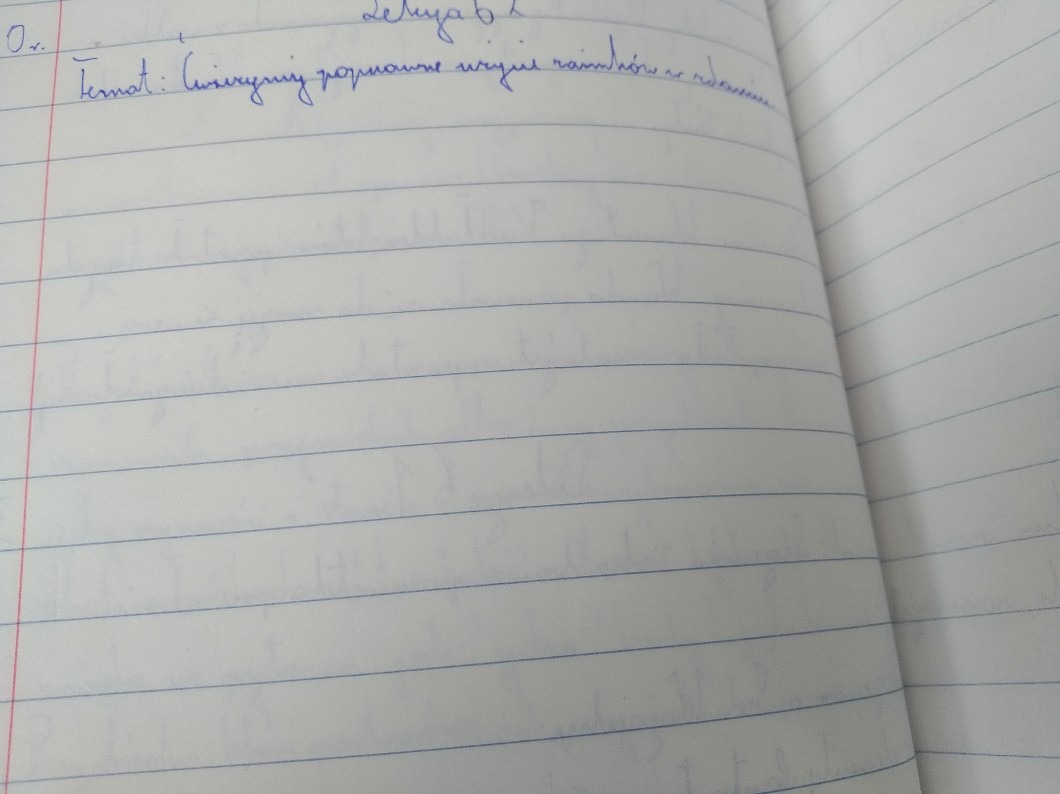 Lekcja 62
0r.
Temat: Ćwiczymy poprawne użycie zaimków w zdaniu.